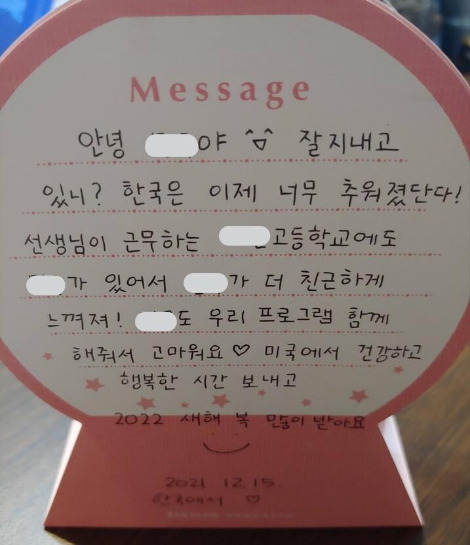 Message
안녕 야 ^ㅂ^ 잘지내고
있니? 한국은 이제 너무 추워졌단다!
선생님이 근무하는 고등학교에도
가 있어서 가 더 친근하게
느껴져! 도 우리 프로그램 함께
해줘서 고마워요♡ 미국에서 건강하고
행복한 시간 보내고
2022 새해 복 많이 받아요
2021. 12. 15.
한국에서 ♡